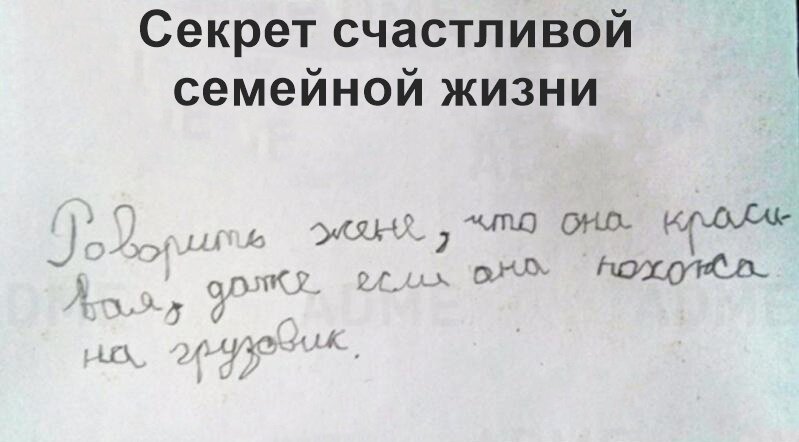 Секрет счастливой
семейной жизни
Говорить жене, что она краси-
вая, даже если она похожа
на грузовик.
ADME
ADME